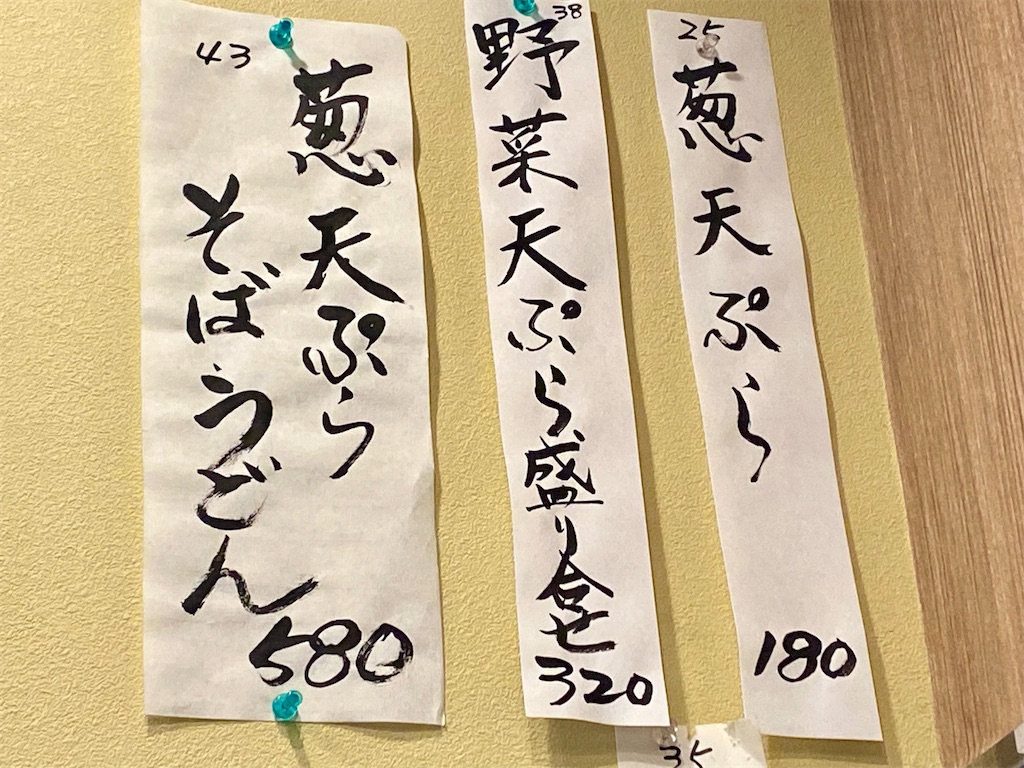 25
葱天ぷら
180
38
野菜天ぷら盛り合せ
320
43
葱天ぷら
そばうどん
580
35